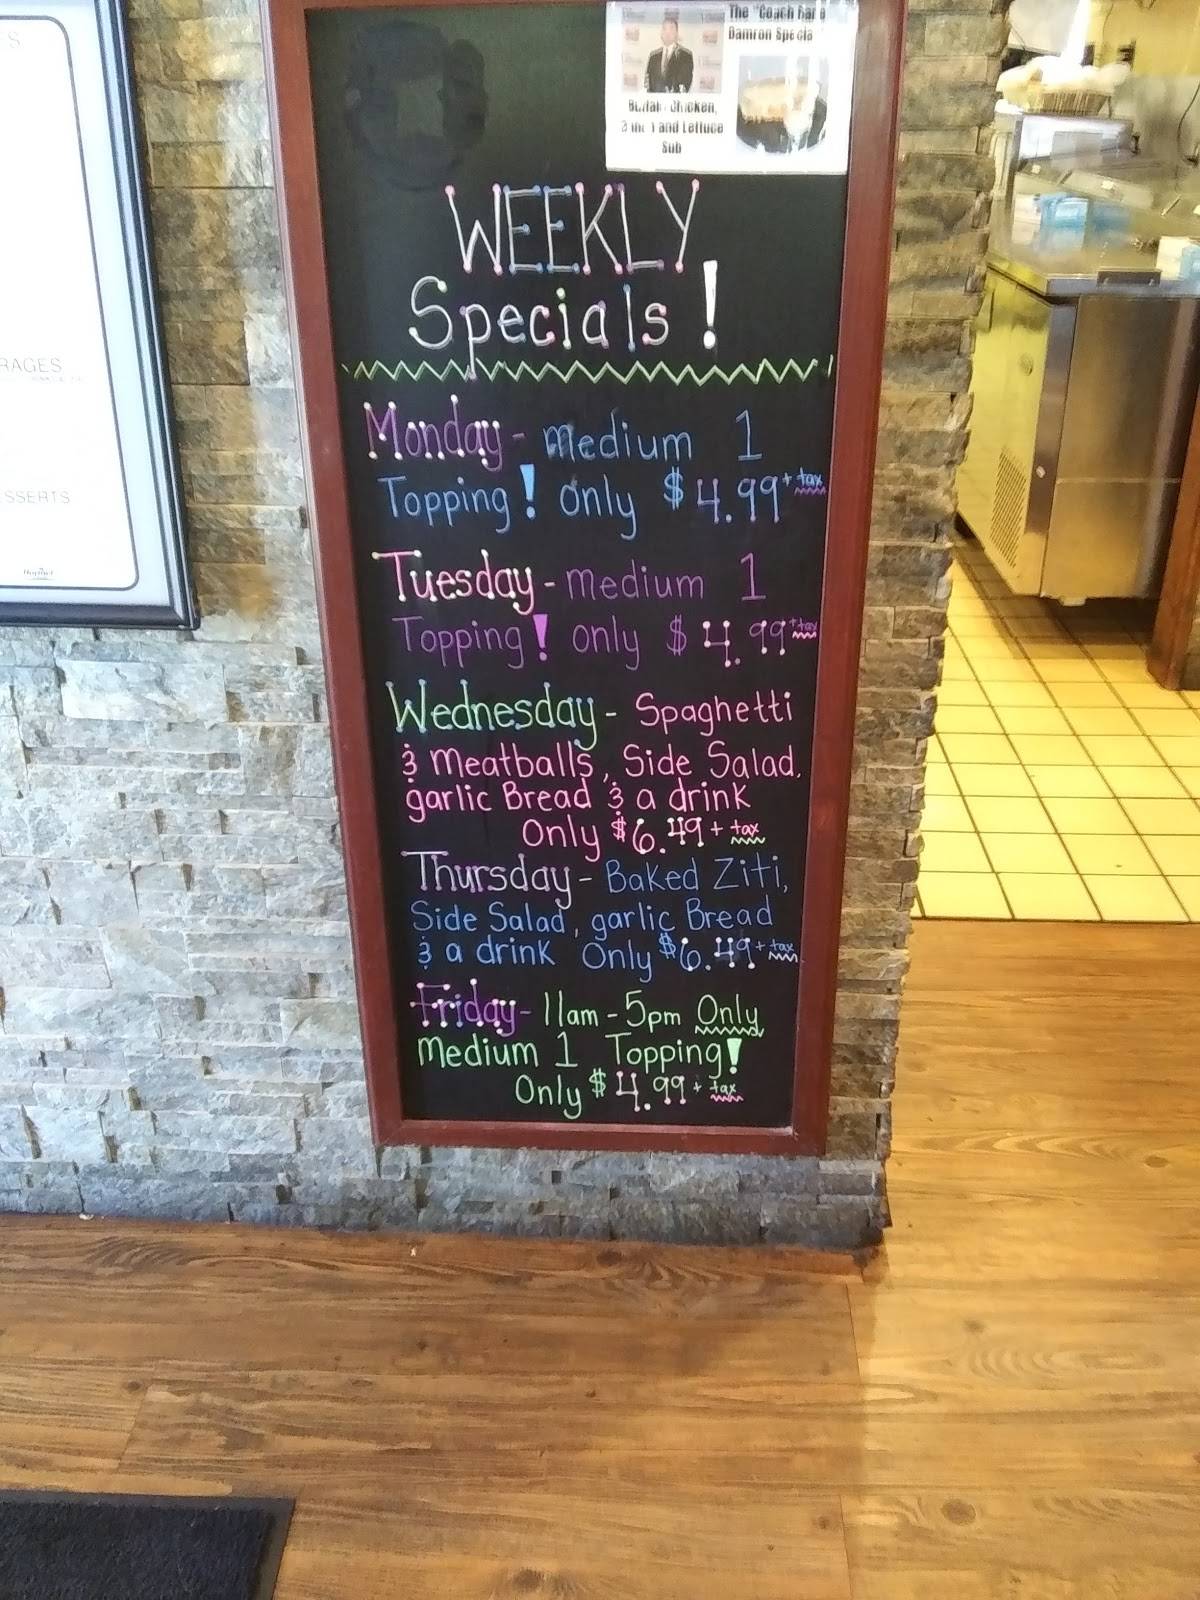 The "Coach
Damron Special
Chicken,
and Lettuce
Sub
WEEKLY
Specials!
Monday - medium 1
Topping! only $4.99 + tax
Tuesday - medium 1
Topping! only $4.99 + tax
Wednesday - Spaghetti
& Meatballs, Side Salad,
garlic Bread & a drink
Only $6.49 + tax
Thursday - Baked Ziti,
Side Salad, garlic Bread
& a drink Only $6.49 + tax
Friday - 11am - 5pm Only
Medium 1 Topping!
Only $4.99 + tax
RAGES
SSERTS